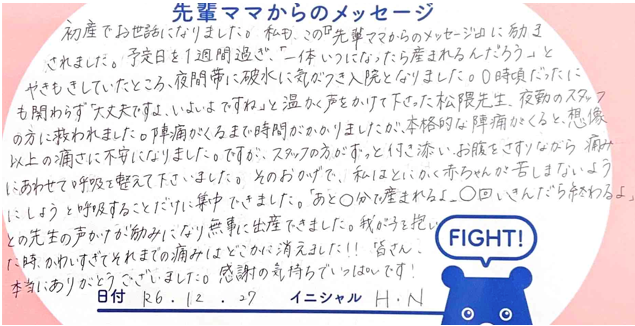 先輩ママからのメッセージ
初産でお世話になりました。私も、この『先輩ママからのメッセージ』に励ま
されました。予定日を1週間過ぎ、「一体いつになったら産まれるんだろう」と
やきもきしていたところ、夜間帯に破水に気がつき入院となりました。0時頃だったに
も関わらず「大丈夫ですよ、いよいよですね」と温かく声をかけて下さった松隈先生、夜勤のスタッフ
の方に救われました。陣痛がくるまで時間がかかりましたが、本格的な陣痛がくると、想像
以上の痛さに不安になりました。ですが、スタッフの方がずっと付き添いお腹をさすりながら 痛み
にあわせて呼吸を整えて下さいました。そのおかげで、私はとにかく赤ちゃんが苦しまないよう
にしようと呼吸することだけに集中できました。「あと〇分で産まれるよ」「〇回いきんだら終わるよ」
との先生の声かけが励みになり無事に出産できました。我が子を抱い
た時、かわいすぎてそれまでの痛みはどこかに消えました!! 皆さん、
本当にありがとうございました。感謝の気持ちでいっぱいです!
FIGHT!
日付 R6.12.27 イニシャル H.N